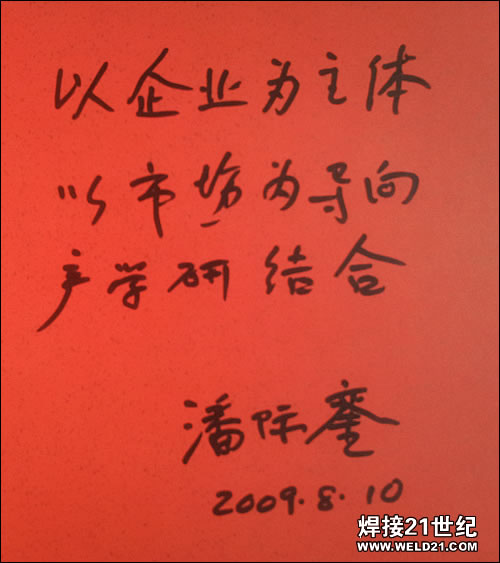 以企业为主体
以市场为导向
产学研结合
潘际銮
2009.8.10
焊接21世纪
WWW.WELD21.COM